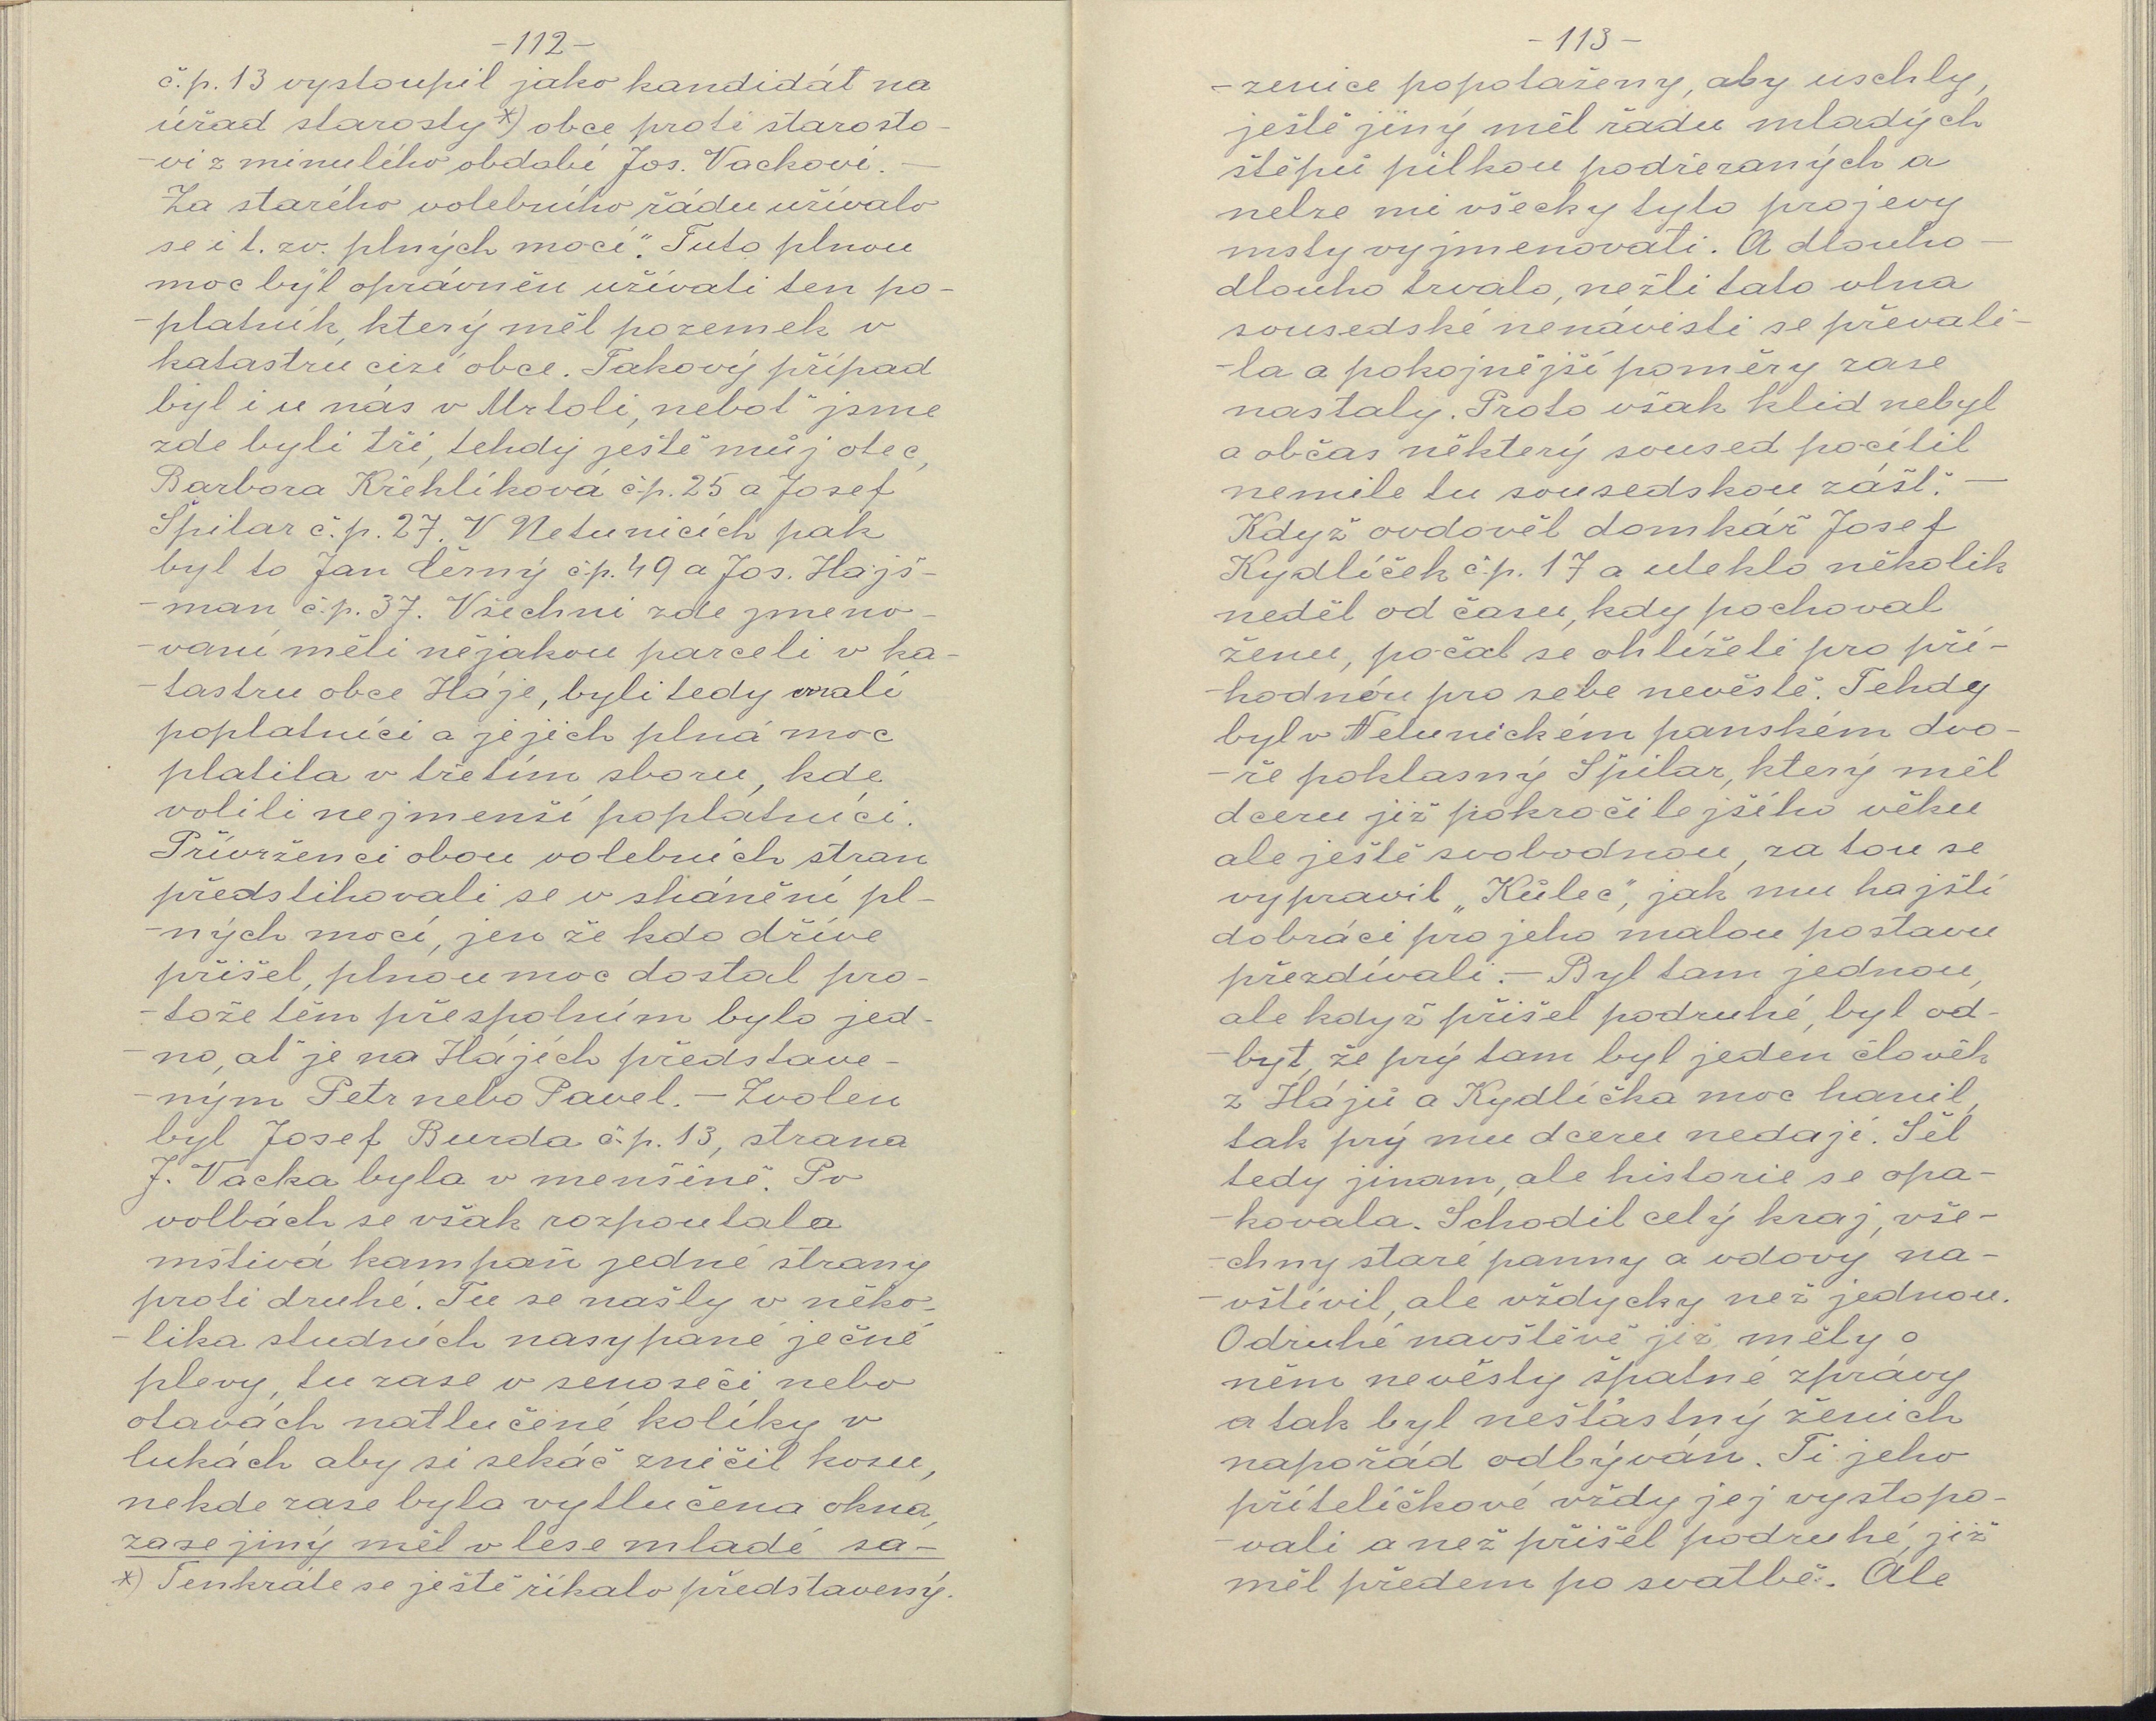 -112-
č.p. 13 vystoupil jako kandidát na
úřad starosty *) obce proti starosto-
-vi z minulého období Jos. Vackovi. —
Za starého volebního řádu užívalo
se i t. zv. plných mocí". Tuto plnou
moc byl oprávněn užívati ten po-
-platník, který měl pozemek v
katastru cizí obce. Takový případ
byl i u nás v Mrtoli, neboť jsme
zde byli tři, tehdy ještě můj otec,
Barbora Křehlíková č.p. 25 a Josef
Špilar č.p. 27. V Netunicích pak
byl to Jan Černý č.p. 49 a Jos. Hajš-
-man č.p. 37. Všechni zde jmeno-
-vaní měli nějakou parceli v ka-
-tastru obce Háje, byli tedy malí
poplatníci a jejich plná moc
platila v třetím sboru, kde
volili nejmenší poplatníci.
Přívrženci obou volebních stran
předstihovali se v shánění pl-
-ných mocí, jen že kdo dříve
přišel, plnou moc dostal pro-
-tože těm přespolním bylo jed-
-no, ať je na Hájích představe-
-ným Petr nebo Pavel. — Zvolen
byl Josef Burda č.p. 13, strana
J. Vacka byla v menšině. Po
volbách se však rozpoutala
mstivá kampaň jedné strany
proti druhé. Tu se našly v něko-
-lika studních nasypané ječné
plevy, tu zase v senoseči nebo
otavách natlučené kolíky v
lukách aby si sekáč zničil kosu,
nekde zase byla vytlučena okna,
zase jiný měl v lese mladé sa-
*) Tenkráte se ještě říkalo představený.
-113-
-zenice popotaženy, aby uschly,
ještě jiný měl řadu mladých
štěpů pilkou podřezaných a
nelze mi všecky tyto projevy
msty vyjmenovati. A dlouho —
dlouho trvalo, nežli tato vlna
sousedské nenávisti se převali-
-la a pokojnější poměry zase
nastaly. Proto však klid nebyl
a občas některý soused pocítil
nemile tu sousedskou zášť. —
Když ovdověl domkář Josef
Kydlíček č.p. 17 a uteklo několik
neděl od času, kdy pochoval
ženu, počal se ohlížeti pro pří-
-hodnou pro sebe nevěstě. Tehdy
byl v Netunickém panském dvo-
-ře poklasný Špilar, který měl
dceru již pokročilejšího věku
ale ještě svobodnou, za tou se
vypravil „Kůleč", jak mu hajští
dobráci pro jeho malou postavu
přezdívali. — Byl tam jednou,
ale když přišel podruhé, byl od-
-byt, že prý tam byl jeden člověk
z Hájů a Kydlíčka moc hanil,
tak prý mu dceru nedají. Šel
tedy jinam, ale historie se opa-
-kovala. Schodil celý kraj, vše-
-chny staré panny a vdovy na-
-vštívil, ale vždycky než jednou.
O druhé navštěvě již měly o
něm nevěsty špatné zprávy
a tak byl nešťastný ženich
napořád odbýván. Ti jeho
přítelíčkové vždy jej vystopo-
-vali a než přišel podruhé, již
měl předem po svatbě. Ale